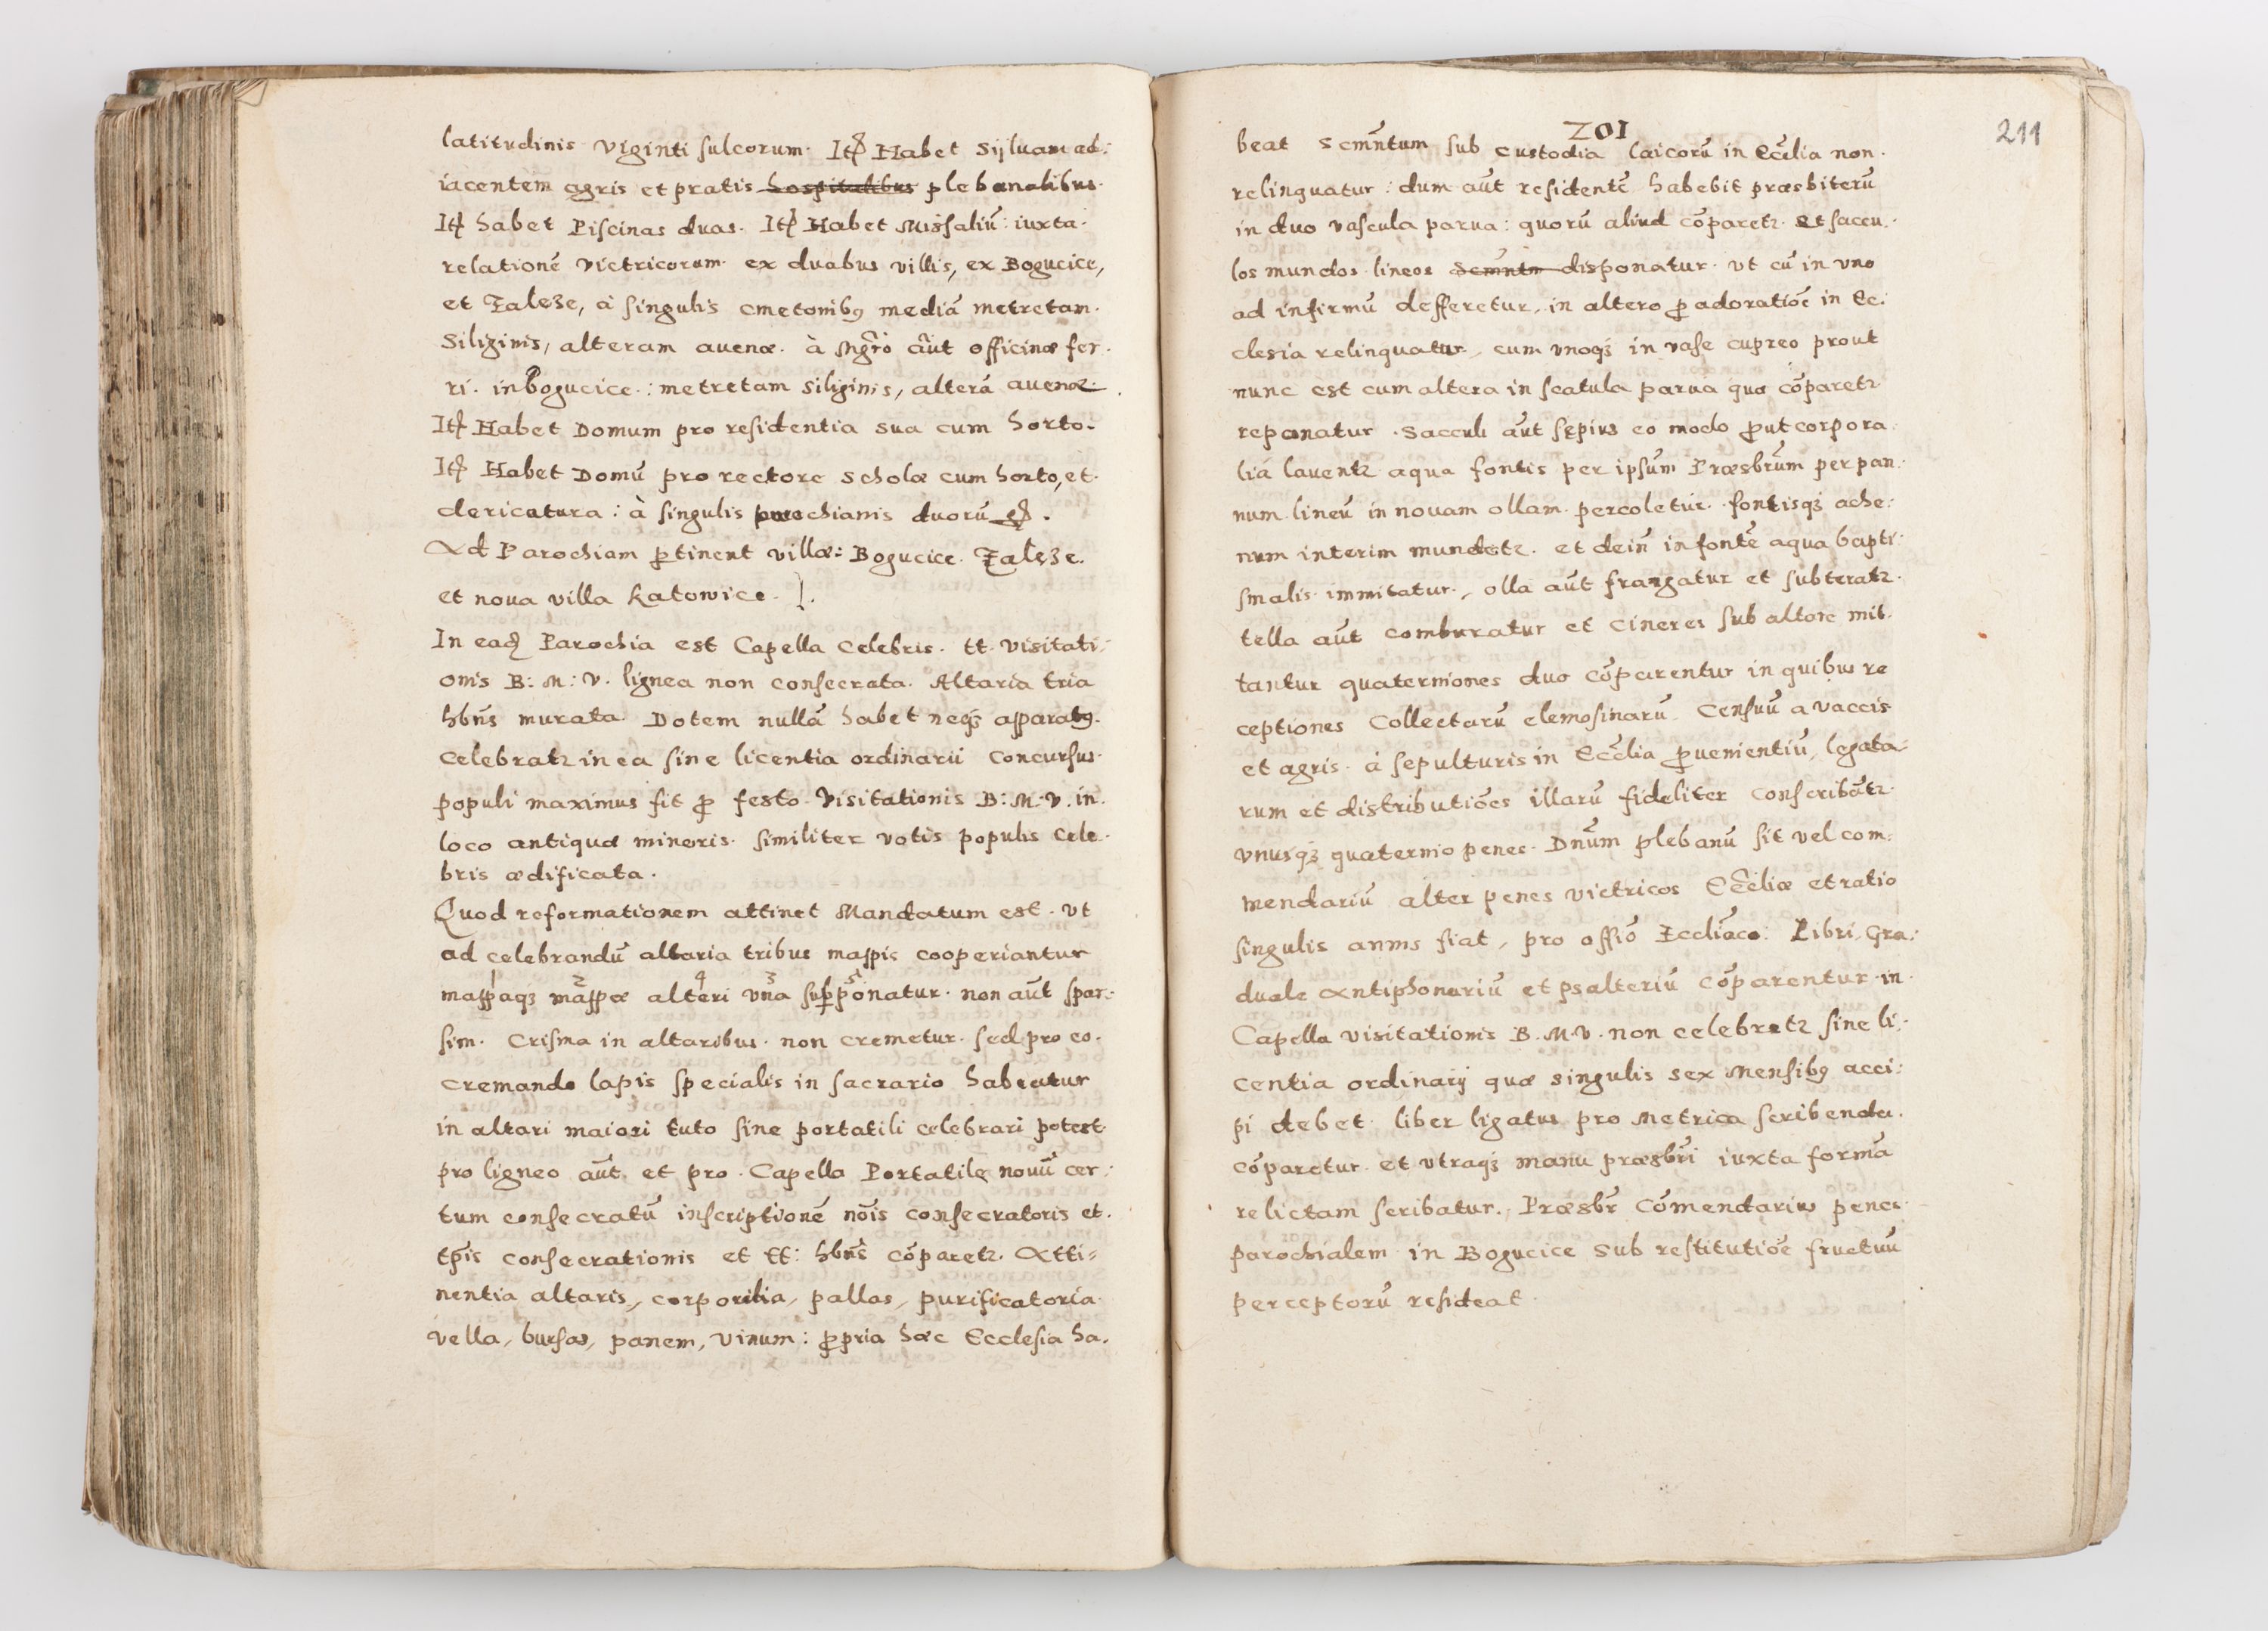 latitudinis viginti sulcorum. Itꝫ Habet Sÿluam ad:
iacentem agris et pratis hospitalibus plebanalibus.
Itꝫ habet Piscinas duas. Itꝫ Habet Missaliū: iuxta.
relationē victricorum. ex duabus villis, ex Bogucice,
et Zalęze, à singulis cmetonibꝰ mediā metretam.
Siliginis, alteram auenæ. à Mgr̄o aūt officinæ fer.
ri. in Bogucice: metretam siliginis, alterā auenæ.
Itꝫ Habet Domum pro residentia sua cum horto.
Itꝫ Habet Domū pro rectore scholæ cum horto, et.
clericatura: à singulis parochianis duorū .
Ad Parochiam ꝑtinent villæ: Bogucice. Zalęze.
et noua villa Katowice. ].
In eaꝺ Parochia est Capella celebris. tt. visitati:
onis B: M: V. lignea non consecrata. Altaria tria
hbn̄s murata. Dotem nullā habet neqꝫ apparatꝰ.
celebratꝛ in ea sine licentia ordinarii concursus.
populi maximus fit ꝓ festo. Visitationis B: M. V. in.
loco antiquæ minoris. similiter votis populis cele.
bris ædificata.
Quod reformationem attinet Mandatum est. vt
ad celebrandū altaria tribus mappis cooperiantur
1 2 4 3 5
mappaqꝫ mappæ alteri vna suꝑponatur. non aūt spar:
sim. Crisma in altaribus. non cremetur. sed pro eo.
cremando lapis specialis in sacrario habeatur
in altari maiori tuto sine portatili celebrari potest.
pro ligneo aūt. et pro. Capella Portatile nouū cer:
tum consecratū inscriptionē nōis consecratoris et.
tp̄is consecrationis et tt: hbn̄s cōparetꝛ. Atti=
nentia altaris, corporalia, pallas, purificatoria
vella, bursas, panem, vinum: ꝓpria hæc Ecclesia ha.
201
211
beat scmn̄tum sub custodia laicorū in Ecc̄lia non.
relinquatur: dum aūt residentē habebit præsbiterū
in duo vascula parua: quorū aliud cōparetꝛ. Et saccu.
los mundos lineos scmn̄tm disponatur. vt cū in vno
ad infirmū defferetur, in altero ꝓ adoratiōe in Ec:
clesia relinquatur, cum vnoqꝫ in vase cupreo prout
nunc est cum altera in scatula parua quæ cōparetꝛ
reponatur. Sacculi aūt sępius eo modo ꝓut corpora
lia lauentꝛ aqua fontis per ipsum Præsbr̄um per pan:
num lineū in nouam ollam. percoletur. fontisqꝫ ache:
num interim mundetꝛ. et dein̄ in fontē aqua bapti:
smalis immitatur, olla aūt frangatur et subteratꝛ.
tella aūt comburatur et cineres sub altare mit.
tantur quaterniones duo cōparentur in quibus re
ceptiones Collectarū elemosinarū. Censuū a vaccis
et agris. à sepulturis in Ecc̄lia ꝓuenientiū, legata:
rum et distributiōes illarū fideliter conscribātꝛ.
vnusqꝫ quaternio penes. Dnūm plebanū sit vel com:
mendariū alter penes victricos Ecc̄liæ et ratio
singulis annis fiat, pro offiō Eccliāco: Libri, Gra:
duale Antiphonariū et psalteriū cōparentur. in.
Capella visitationis B. M. V. non celebretꝛ sine li:
centia ordinarij quæ singulis sex mensibꝰ acci:
pi debet. liber ligatus pro Metrica scribenda.
cōparetur. et vtraqꝫ manu præsbr̄i iuxta formā
relictam scribatur. Præsbr̄ Cōmendarius penes.
parochialem in Bogucice sub restitutiōe fructuū
perceptorū resideat.